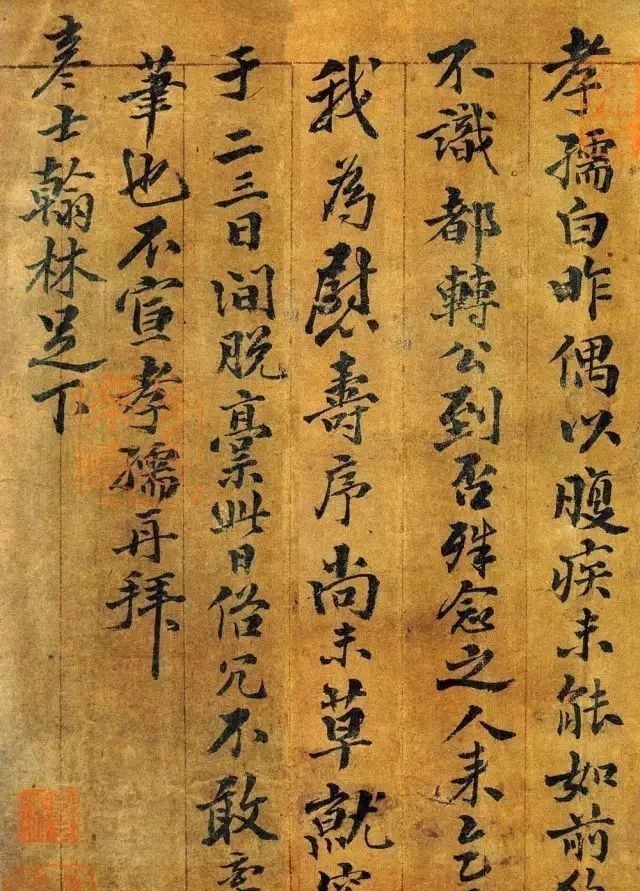 孝孺白昨偶以腹疾未能如前
不識都轉公到否殊念之人来乞
我為慰壽序尚未草就
于二三日間脱稾此日俗冗不敢
筆也不宣孝孺再拜
彦士翰林足下